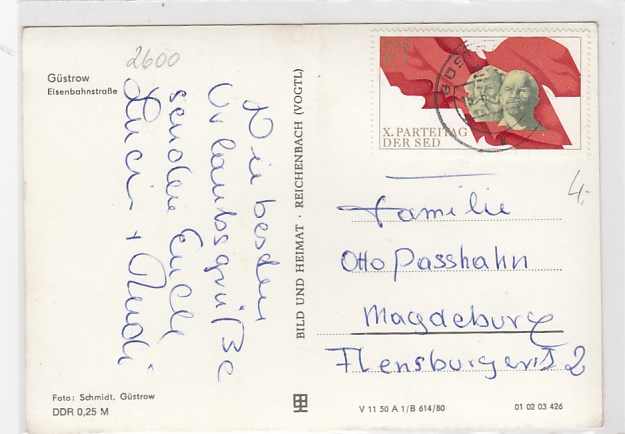 2600
Güstrow
Eisenbahnstraße
Die besten
Urlaubsgrüße
senden Euch
Luci + Rudi
Foto: Schmidt, Güstrow
DDR 0,25 M
BILD UND HEIMAT · REICHENBACH (VOGTL)
X. PARTEITAG
DER SED
4.-
Familie
Otto Passhahn
Magdeburg
Flensburgerstr 2
V 11 50 A 1/B 614/80
01 02 03 426